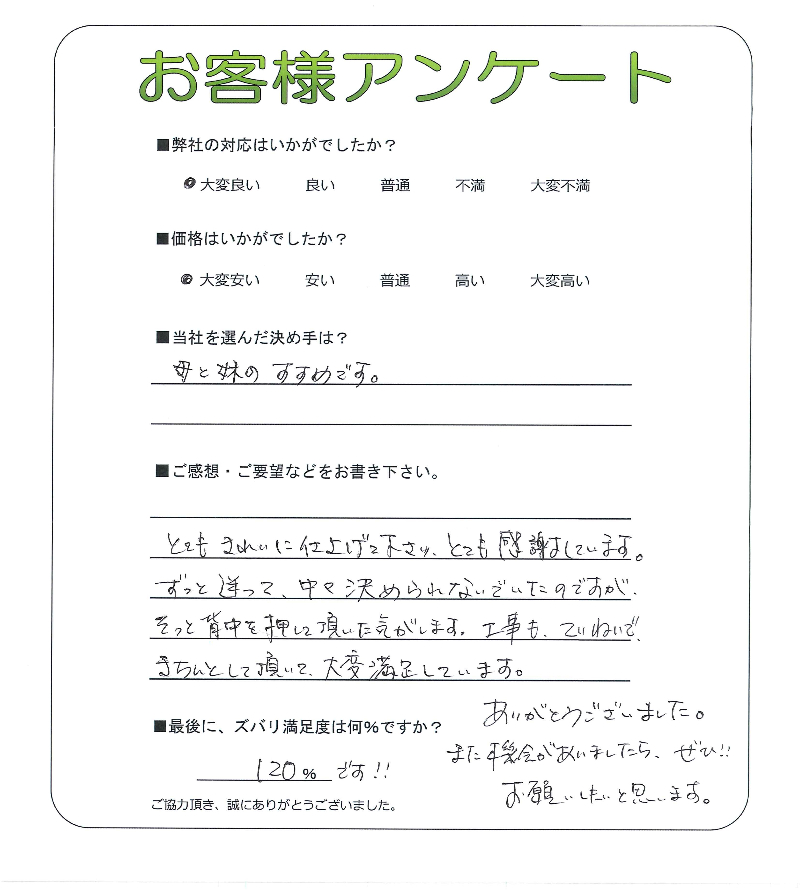 お客様アンケート
■弊社の対応はいかがでしたか？
大変良い 良い 普通 不満 大変不満
■価格はいかがでしたか？
大変安い 安い 普通 高い 大変高い
■当社を選んだ決め手は？
母と妹の すすめです。
■ご感想・ご要望などをお書き下さい。
とても きれいに 仕上げて下さり、とても 感謝しています。
ずっと 迷って、中々 決められないでいたのですが、
そっと 背中を押して頂いた気がします。工事も、ていねいで、
きちんとして頂いて、大変満足しています。
■最後に、ズバリ満足度は何%ですか？
120% です!!
ありがとうございました。
また機会がありましたら、ぜひ!!
お願いしたいと思います。
ご協力頂き、誠にありがとうございました。